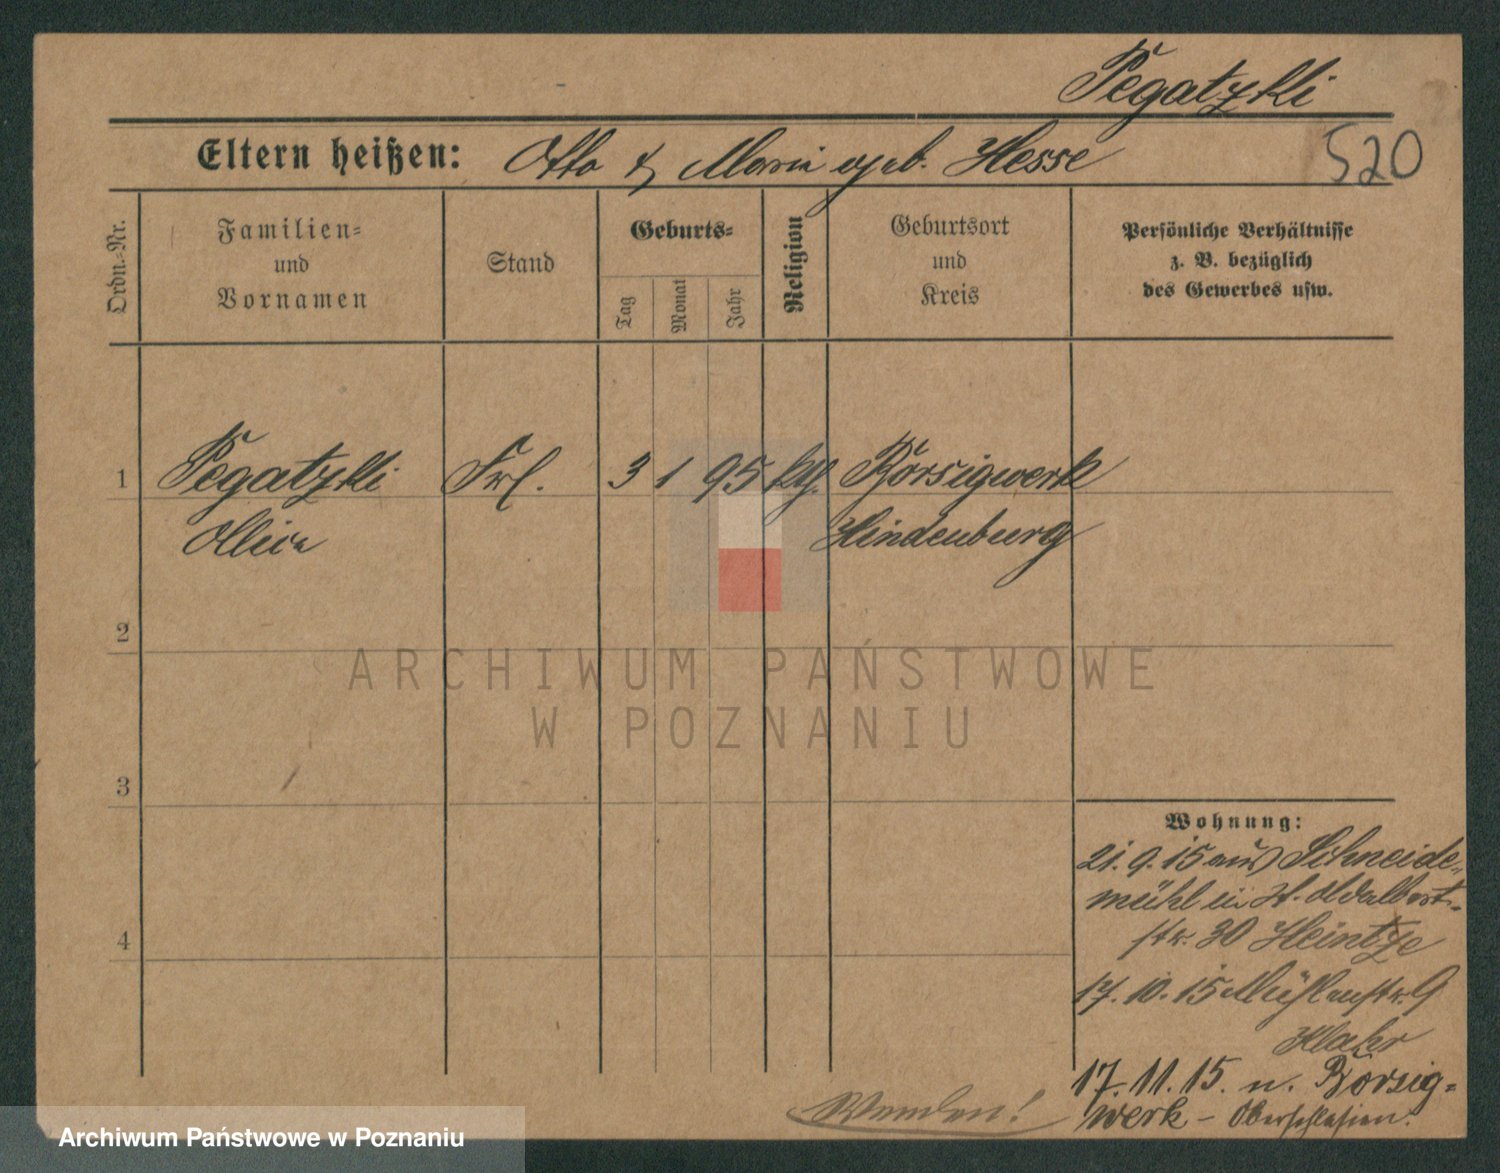 Pegatzki
520
Eltern heißen: Otto & Maria geb. Hesse
Ordn.-Nr.
Familien-
und
Vornamen
Stand
Geburts-
Tag
Monat
Jahr
Religion
Geburtsort
und
Kreis
Persönliche Verhältnisse
z. B. bezüglich
des Gewerbes usw.
1 Pegatzki Frl. 3 1 95 kth. Borsigwerk
Hindenburg
2
3
4
ARCHIWUM PAŃSTWOWE
W POZNANIU
Wohnung:
21.9.15 aus Schneide-
mühl in W. Adalbert-
str. 30 Heintze
17.10.15 Mühlenstr. 9
17.11.15. n. Borsig-
werk - Oberschlesien.
Wenden!
Archiwum Państwowe w Poznaniu